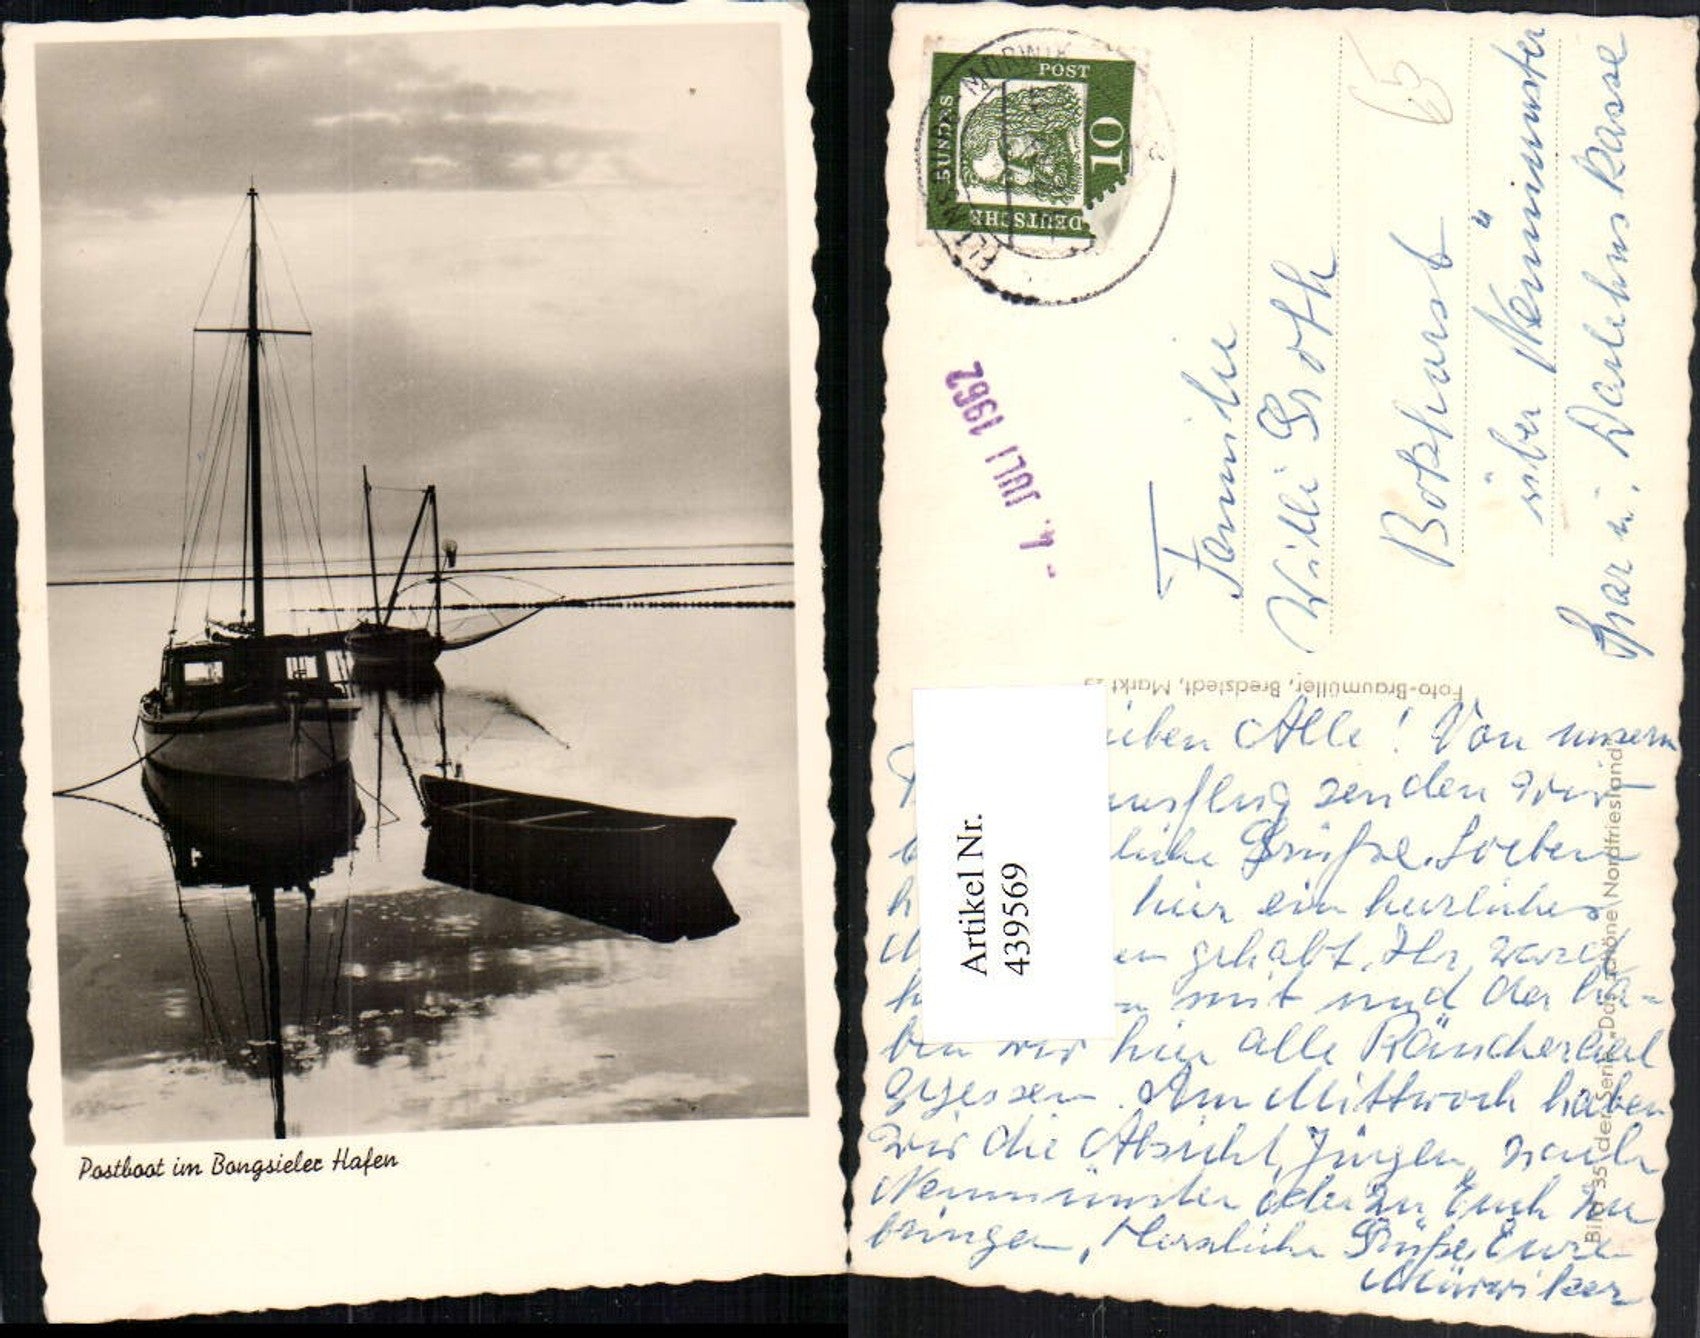 Postboot im Bongsieler Hafen
DEUTSCHE
BUNDES
POST
10
MÜRWIK
- 4. JULI 1962
65
Familie
Willi Groth
Bokhorst
über Neumünster
Spar u. Darlehnskasse
Foto-Braumüller, Bredstedt, Markt
Bild 35 der Serie „Das schöne Nordfriesland"
Artikel Nr.
439569
ieben Alle! Von unserm
ausflug senden wir
liche Grüße. Soeben
hier ein herrliches
en gehabt. Ihr waret
mit und da ha-
ben wir hier alle Räucheraal
gegessen. Am Mittwoch haben
wir die Absicht, Jürgen nach
Neumünster oder zu Euch zu
bringen. Herzliche Grüße, Eure
Mürwiker